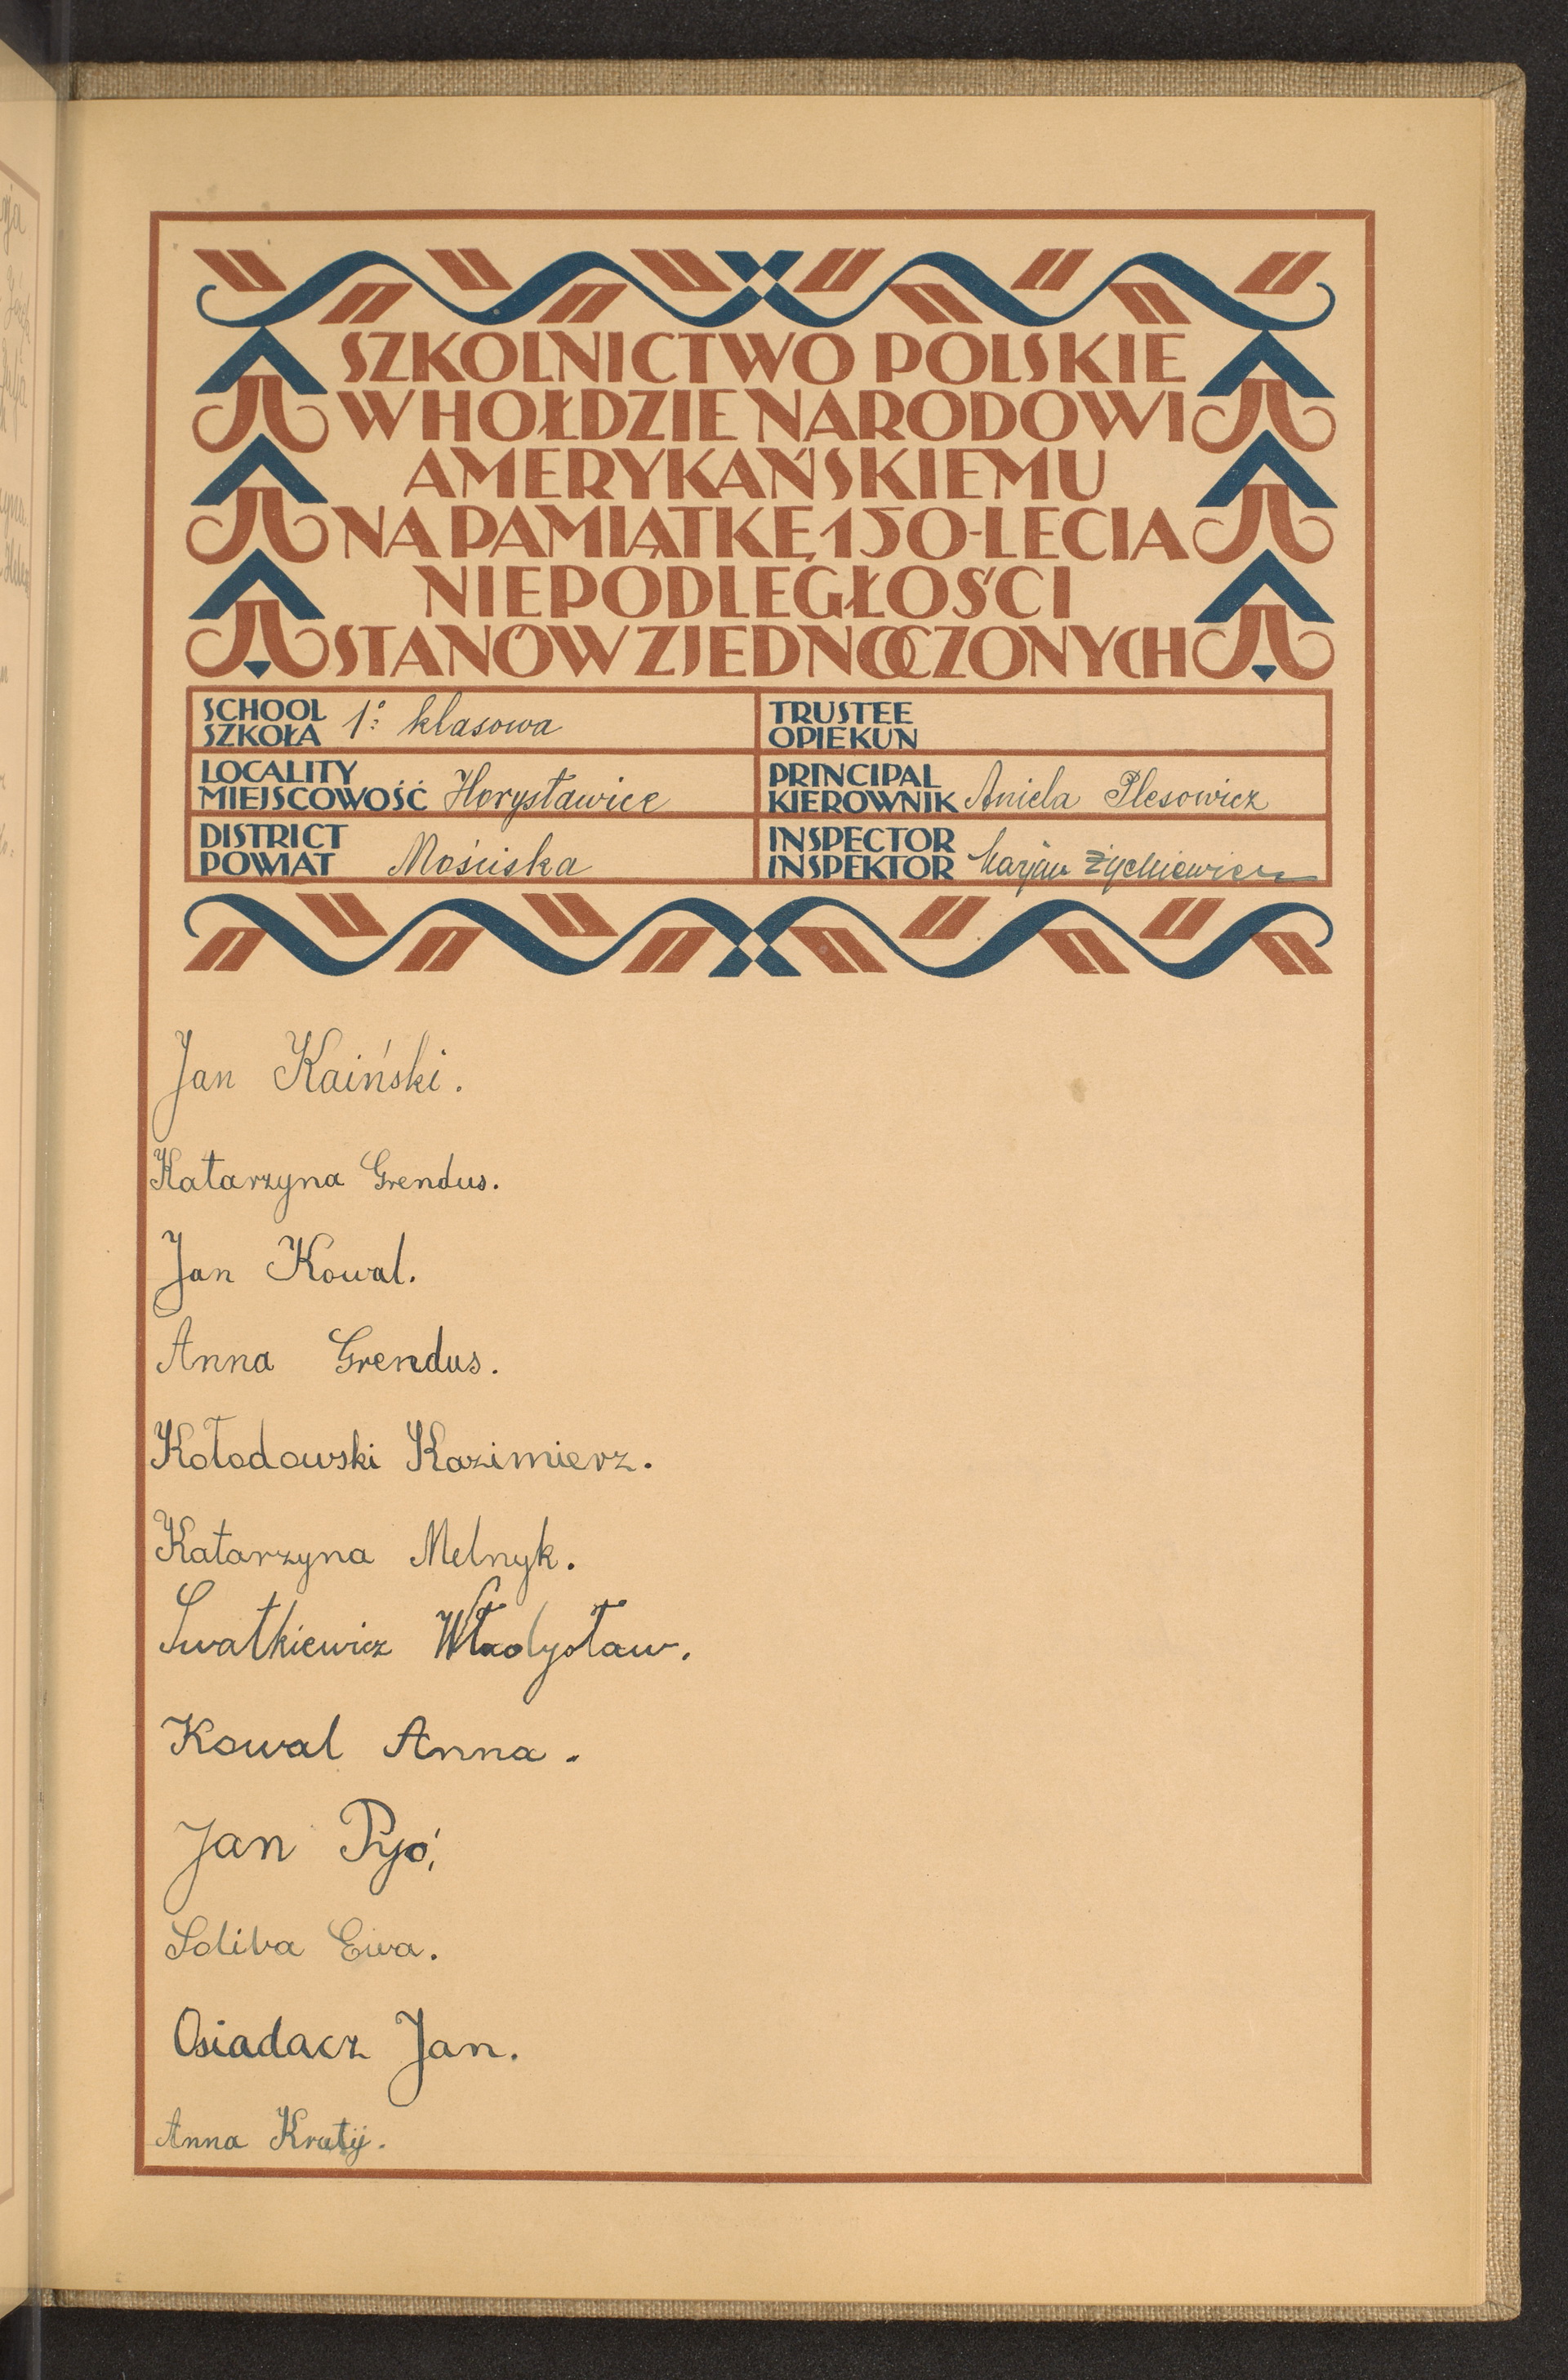 SZKOLNICTWO POLSKIE
W HOŁDZIE NARODOWI
AMERYKAŃSKIEMU
NA PAMIĄTKĘ 150-LECIA
NIEPODLEGŁOŚCI
STANÓW ZJEDNOCZONYCH
SCHOOL
SZKOŁA 1º klasowa
TRUSTEE
OPIEKUN
LOCALITY
MIEJSCOWOŚĆ Horysławice
PRINCIPAL
KIEROWNIK Aniela Plesowicz
DISTRICT
POWIAT Mościska
INSPECTOR
INSPEKTOR Marjan Żychiewicz
Jan Kaiński.
Katarzyna Grendus.
Jan Kowal.
Anna Grendus.
Kołodowski Kazimierz.
Katarzyna Melnyk.
Swatkiewicz Władysław.
Kowal Anna.
Jan Pyś.
Soliba Ewa.
Osiadacz Jan.
Anna Kratij.